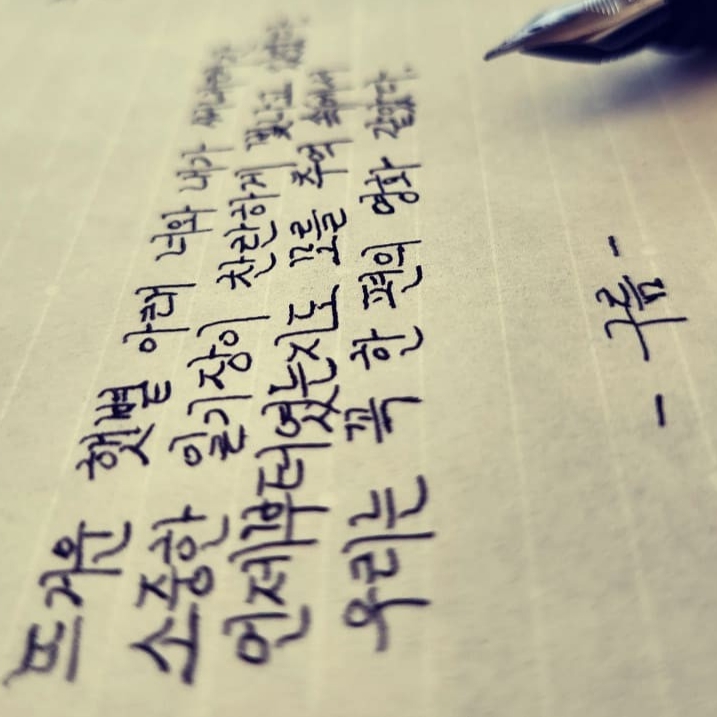 뜨거운 햇볕 아래 너와 내가
소중한 일기장이 찬란하게 빛나고
언제부터였는지도 모를 추억 속에서
우리는 꼭 한 편의 영화 같았다.
- 구름 -